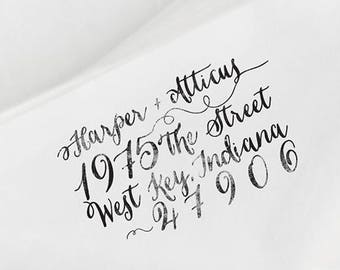 Harper + Atticus
1975 The Street
West Key, Indiana
47906